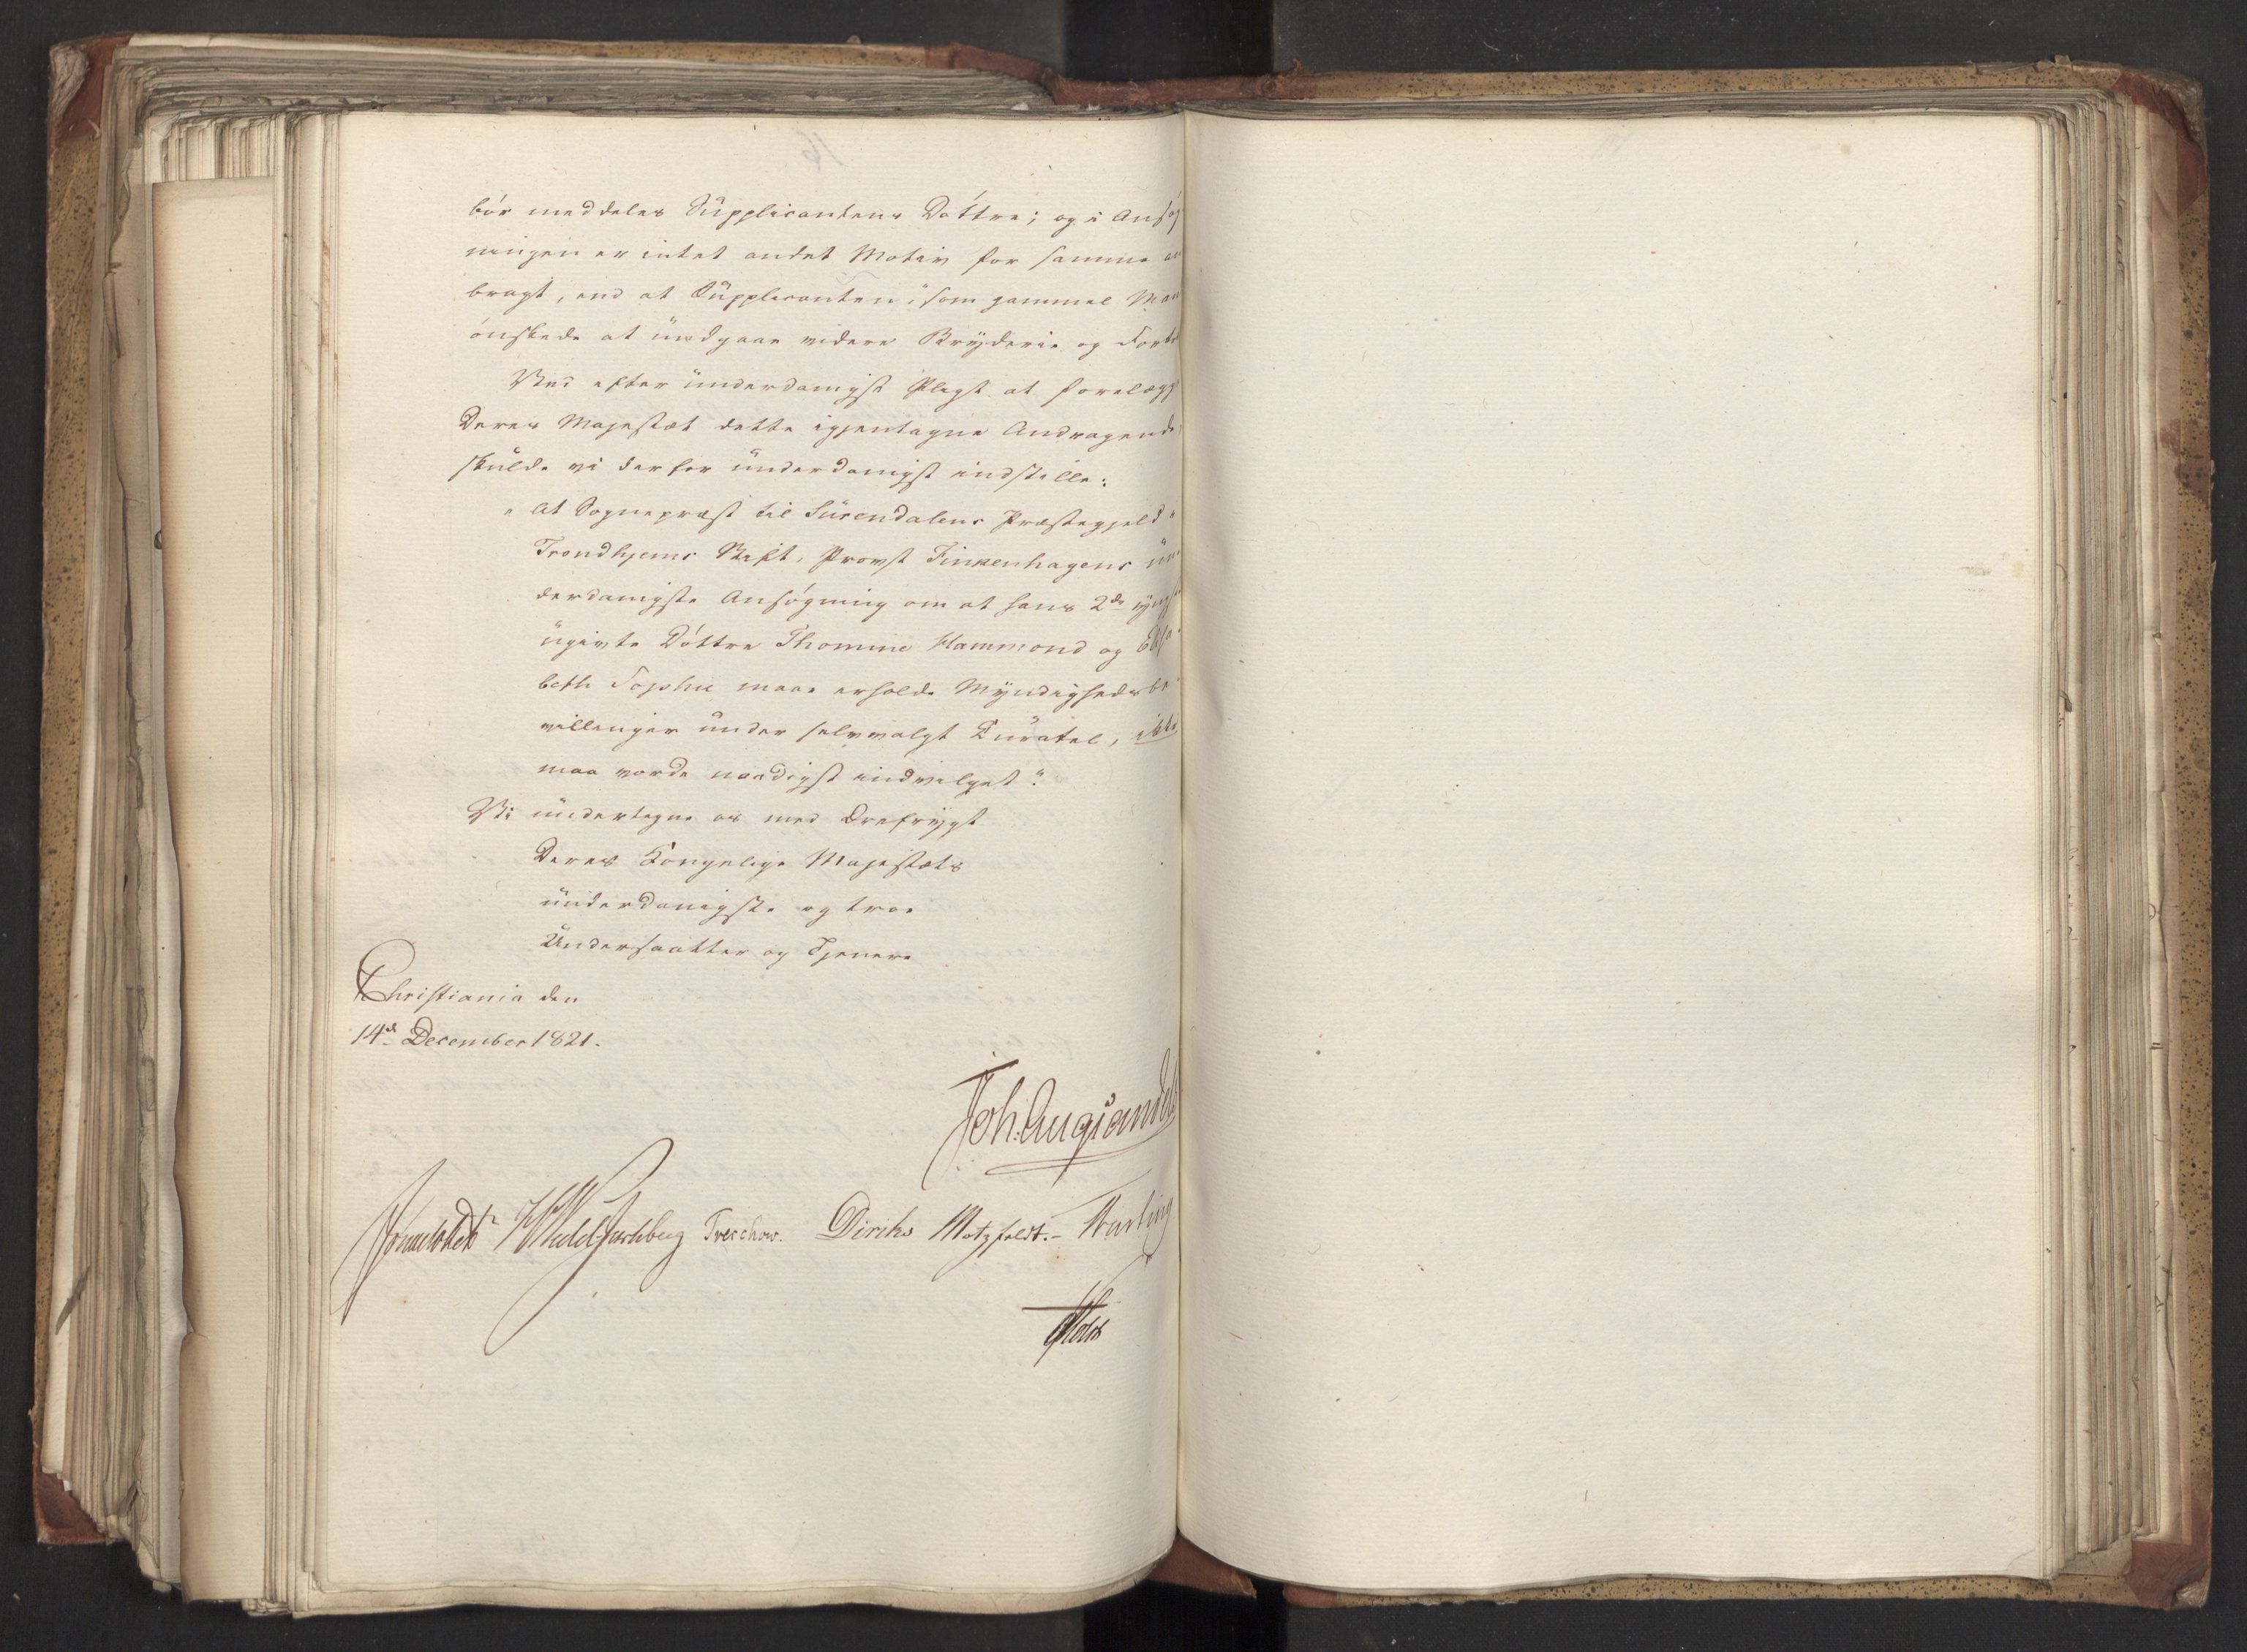 bör meddeles Supplicantens Döttre; og i Ansøg
ningen er intet andet Motiv for samme an
bragt, end at Supplicanten, "som gammel Man
önskede at undgaae videre Bryderie og
Ved efter underdanigst Pligt at forelægge
Deres Majestæt dette igjentagne Andragende
skulde vi derfor underdanigst indstille:
"At Sognepræst til Surendalens Præstegjeld i
Trondhjems Stift, Provst Finkenhagens un
derdanigste Ansøgning om at hans 2de yngste
ugivte Döttre Thomine Hammond og Elisa
beth Sophie maae erholde Myndighedsbe
villinger under selvvalgt Curatel, ikke
maa vorde naadigst indvilget".
Vi undertegne os med Ærefrygt
Deres Kongelige Majestæts
underdanigste og troe
Undersaatter og Tjenere
Christiania den
14d. December 1821.
Joh: Aug: Sandels
Sommerhielm HWedelJarlsberg Treschow. Diriks Motzfeldt.- Fasting
Holst